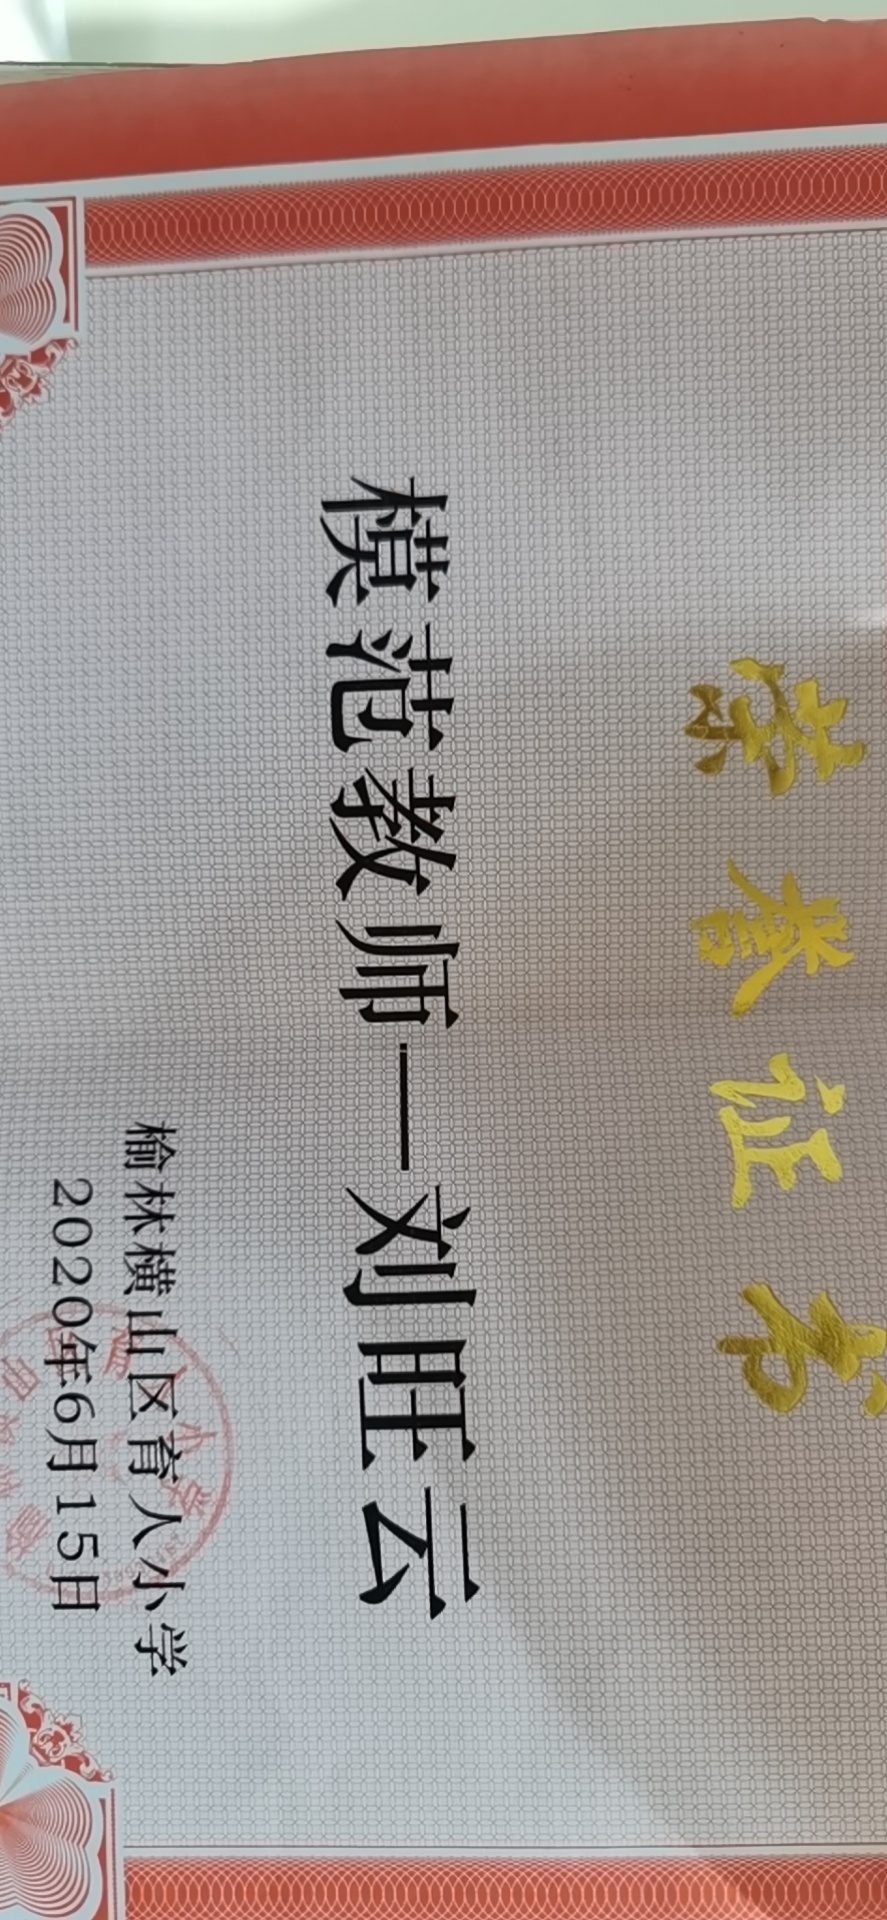 荣誉证书
模范教师—刘旺云
榆林横山区育人小学
2020年6月15日